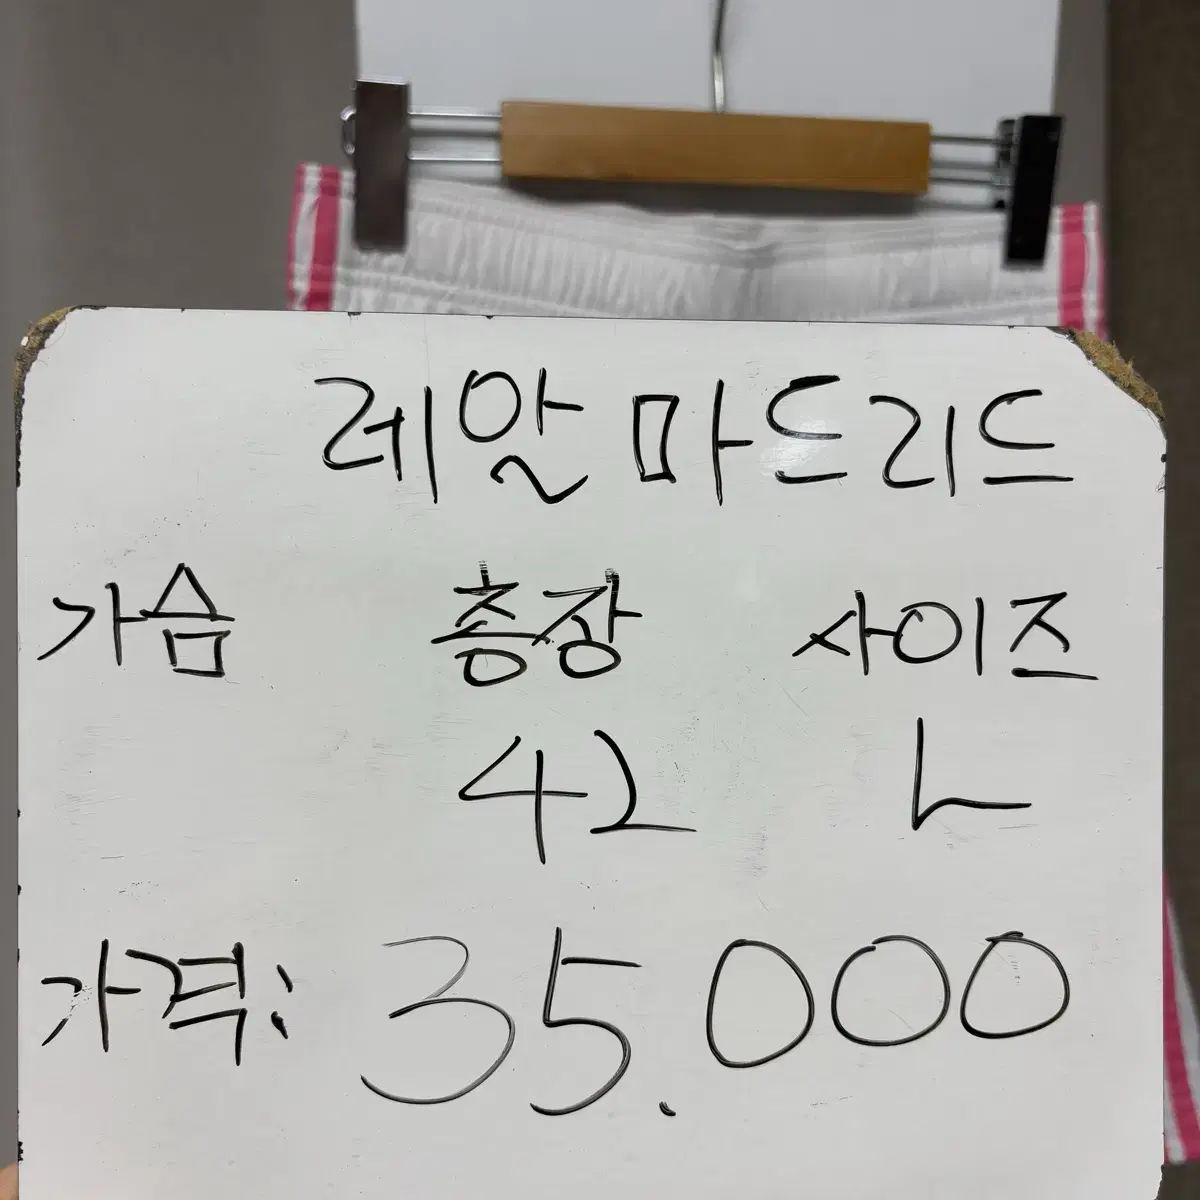 레알 마드리드
가슴 총장 사이즈
42 L
가격: 35.000